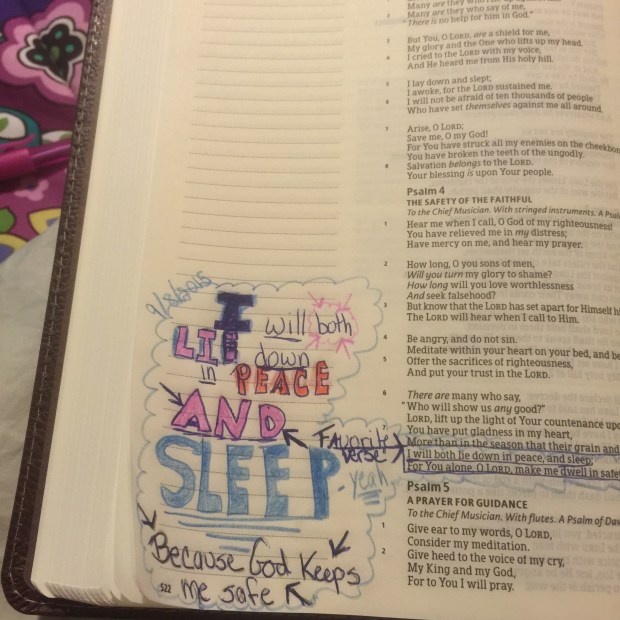 9/8/2015
I
will both
LIE down
in PEACE
AND
Favorite
verse
SLEEP
-yeah
Because God Keeps
me safe
522
Many are they who
2 Many are they who say of me,
"There is no help for him in God."
3 But You, O LORD, are a shield for me,
My glory and the One who lifts up my head.
4 I cried to the LORD with my voice,
And He heard me from His holy hill.
5 I lay down and slept;
I awoke, for the LORD sustained me.
6 I will not be afraid of ten thousands of people
Who have set themselves against me all around.
7 Arise, O LORD;
Save me, O my God!
For You have struck all my enemies on the cheekbon
You have broken the teeth of the ungodly.
8 Salvation belongs to the LORD.
Your blessing is upon Your people.
Psalm 4
THE SAFETY OF THE FAITHFUL
To the Chief Musician. With stringed instruments. A Psal
1 Hear me when I call, O God of my righteousness!
You have relieved me in my distress;
Have mercy on me, and hear my prayer.
2 How long, O you sons of men,
Will you turn my glory to shame?
How long will you love worthlessness
And seek falsehood?
3 But know that the LORD has set apart for Himself hi
The LORD will hear when I call to Him.
4 Be angry, and do not sin.
Meditate within your heart on your bed, and be
5 Offer the sacrifices of righteousness,
And put your trust in the LORD.
6 There are many who say,
"Who will show us any good?"
LORD, lift up the light of Your countenance upo
7 You have put gladness in my heart,
More than in the season that their grain and
I will both lie down in peace, and sleep;
For You alone, O LORD, make me dwell in safe
Psalm 5
A PRAYER FOR GUIDANCE
To the Chief Musician. With flutes. A Psalm of Dav
1 Give ear to my words, O LORD,
Consider my meditation.
2 Give heed to the voice of my cry,
My King and my God,
For to You I will pray.